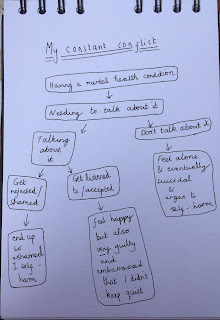 My constant conflict
Having a mental health condition
Needing to talk about it
Talking
about
it
Don't talk about it
Get
rejected/
shamed
Get listened
to / accepted
Feel alone
& eventually
suicidal
&
urges to
self-harm
end up
so
ashamed
I self-
harm
feel happy
but also
very guilty
and
embarrassed
that I didn't
keep quiet